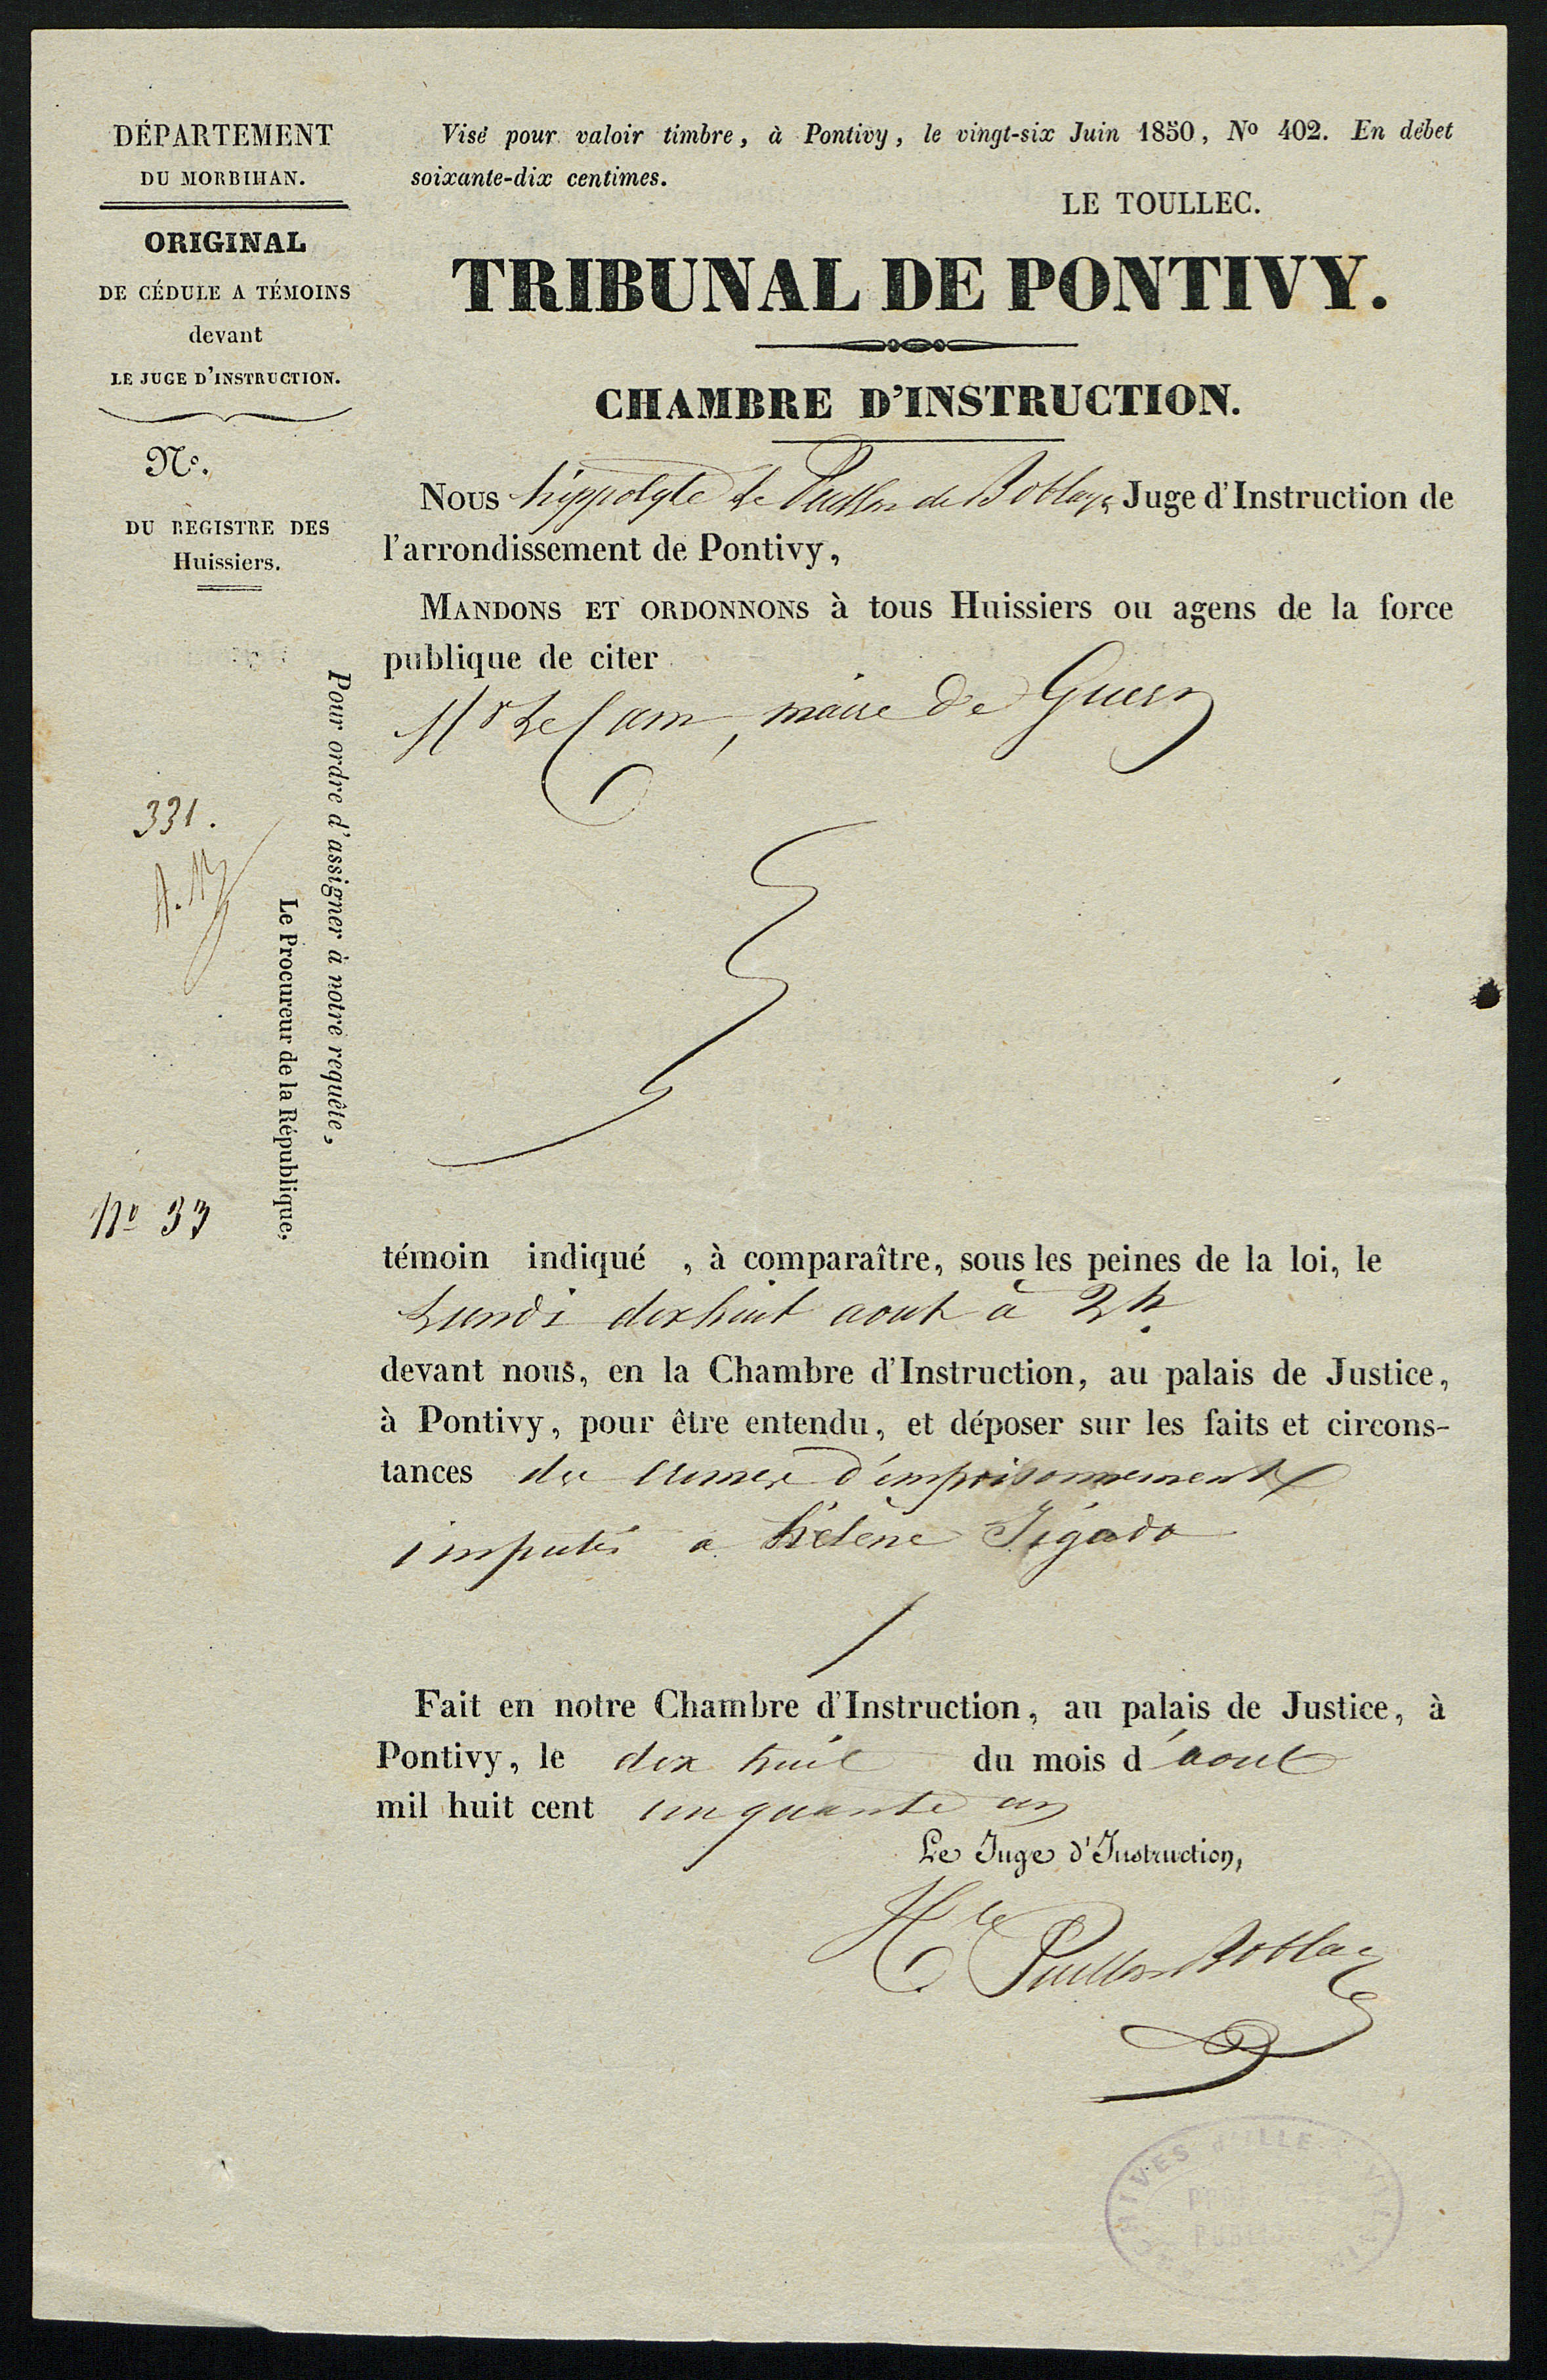 DÉPARTEMENT
DU MORBIHAN.
ORIGINAL
DE CÉDULE A TÉMOINS
devant
LE JUGE D'INSTRUCTION.
N°.
DU REGISTRE DES
Huissiers.
Pour ordre d'assigner à notre requête,
Le Procureur de la République,
331.
N° 33
Visé pour valoir timbre, à Pontivy, le vingt-six Juin 1850, N° 402. En débet
soixante-dix centimes.
LE TOULLEC.
TRIBUNAL DE PONTIVY.
CHAMBRE D'INSTRUCTION.
Nous hippolyte Le Puillon de Boblaye Juge d'Instruction de
l'arrondissement de Pontivy,
MANDONS ET ORDONNONS à tous Huissiers ou agens de la force
publique de citer
Mr Le Cam, maire de Guern
témoin indiqué , à comparaître, sous les peines de la loi, le
Lundi dixhuit aout à 2h.
devant nous, en la Chambre d'Instruction, au palais de Justice,
à Pontivy, pour être entendu, et déposer sur les faits et circons-
tances des crimes d'empoisonnement
imputés a hélène Jégado
Fait en notre Chambre d'Instruction, au palais de Justice, à
Pontivy, le dix huit du mois d'aout
mil huit cent cinquante un
Le Juge d'Instruction,
Hte Puillon Boblaye
ARCHIVES d'ILLE & VILAINE
PROPRIÉTÉ
PUBLIQUE